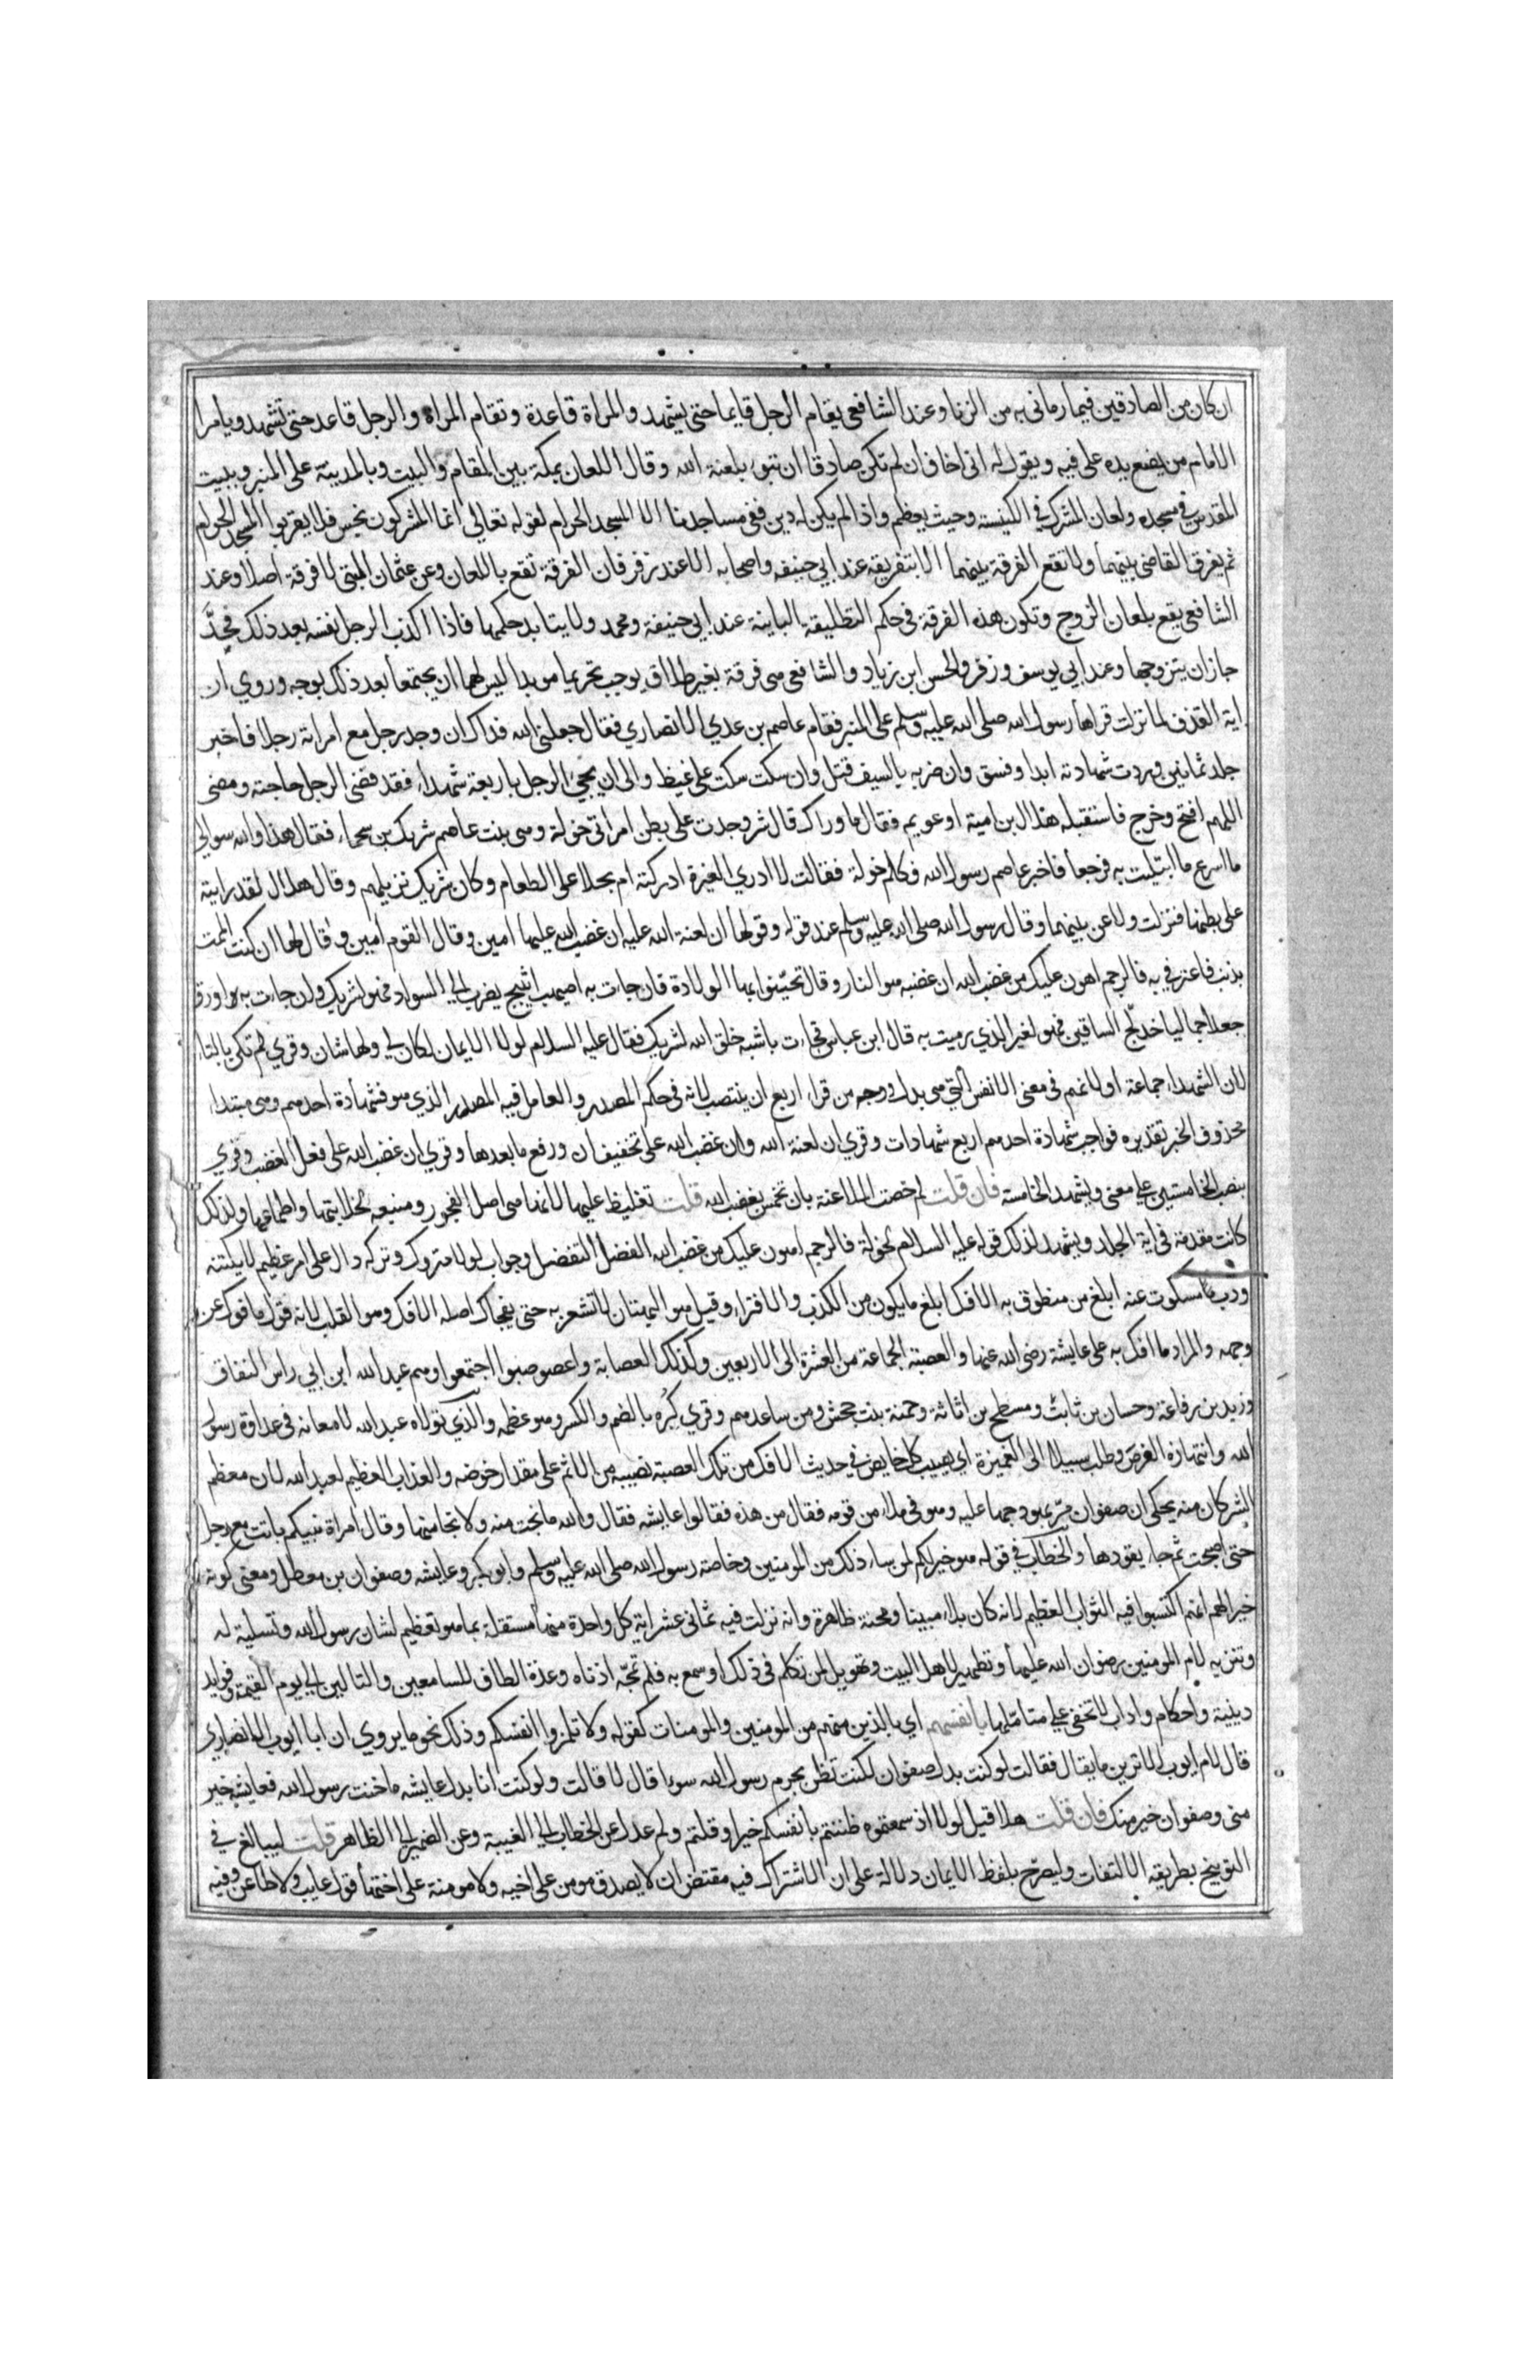 ان كان من الصادقين فيما رماني به من الزنا وعند الشافعي يقام الرجل قايما حتى يشهد والمراة قاعدة وتقام المراة والرجل قاعد حتى تشهد ويأمرا
الامام من يضع يده على فيه ويقول له اني اخاف ان لم تكن صادقا ان تبوء بلعنة الله وقال اللعان بمكة بين المقام والبيت وبالمدينة على المنبر وببيت
المقدس في مسجده ولعان المشرك في الكنيسة وحيث يعظم واذا لم يكن له دين ففي مساجدنا الا المسجد الحرام لقوله تعالى انما المشركون نجس فلا يقربوا المسجد الحرام
ثم يفرق القاضي بينهما ولا تقع الفرقة بينهما الا بتفريقه عند ابي حنيفه واصحابه الا عند زفر فان الفرقة تقع باللعان وعن عثمان البتي لا فرقة اصلا وعند
الشافعي يقع بلعان الزوج وتكون هذه الفرقة في حكم التطليقة الباينة عند ابي حنيفة ومحمد ولا يتابد حكمها فاذا اكذب الرجل نفسه بعد ذلك فحدّ
جاز ان يتزوجها وعند ابي يوسف وزفر والحسن ابن زياد والشافعي هي فرقة بغير طلاق يوجب تحريما موبدا ليس لهما ان يجتمعا بعد ذلك بوجه وروي ان
اية القذف لما نزلت قراها رسول الله صلى الله عليه وسلم على المنبر فقام عاصم بن عدي الانصاري فقال جعلني الله فداك ان وجد رجل مع امراته رجلا فاخبر
جلد ثمانين وردت شهادته ابدا وفسق وان ضربه بالسيف قتل وان سكت سكت على غيظ والى ان يجيء الرجل باربعة شهداء فقد قضى الرجل حاجته ومضى
اللهم افتح وخرج فاستقبله هلال بن امية او عويمر فقال ما وراك قال شر وجدت على بطن امراتي خولة وهي بنت عاصم شريك بن سحماء فقال هذا والله سوالي
ما اسرع ما ابتليت به فرجعا فاخبر عاصم رسول الله فكلم خولة فقالت لا ادري الغيرة ادركته ام بخلا على الطعام وكان شريك نزيلهم وقال هلال لقد رايته
على بطنها فنزلت ولاعن بينهما وقال رسول الله صلى الله عليه وسلم عند قوله وقولها ان لعنة الله عليه ان غضب الله عليها امين وقال القوم امين وقال لها ان كنت الممت
بذنب فاعترفي به فالرجم اهون عليك من غضب الله ان غضبه هو النار وقال تحيّنوا بها الولادة فان جات به اصيهب اثيبج يضرب الى السواد فهو لشريك وان جات به اورق
جعدا جماليا خدلّج الساقين فهو لغير الذي رميت به قال ابن عباس فجاءت باشبه خلق الله لشريك فقال عليه السلام لولا الايمان لكان لي ولها شان وقري لم تكن بالتاء
لان الشهداء جماعة او لانهم في معنى الانفس التي هي بدل ووجه من قراء اربع ان ينتصب لانه في حكم المصدر والعامل فيه المصدر الذي هو فشهادة احدهم وهي مبتداء
محذوف الخبر تقديره فواجب شهادة احدهم اربع شهادات وقري ان لعنة الله وان غضب الله على تخفيف ان ورفع ما بعدها وقري ان غضب الله على فعل الغضب وقري
بنصب الخامستين على معنى ويشهد الخامسة فان قلت لم خصت الملاعنة بان تخمس بغضب الله قلت تغليظا عليها لانها هي اصل الفجور ومنبعه بخلابتها واطماعها ولذلك
كانت مقدمة في اية الجلد ويشهد لذلك قوله عليه السلام لخولة فالرجم اهون عليك من غضب الله الفضل التفضل وجواب لولا متروك وتركه دال على امر عظيم لا يكتنه
ورب مسكوت عنه ابلغ من منطوق به الافك ابلغ ما يكون من الكذب والافتراء وقيل هو البهتان لا تشعر به حتى يفجاك اصله الافك وهو القلب لانه قول مافوك عن
وجهه والمراد ما افك به على عايشة رضي الله عنها والعصبة الجماعة من العشرة الى الاربعين وكذلك العصابة واعصوصبوا اجتمعوا وهم عبد الله ابن ابي راس النفاق
وزيد بن رفاعة وحسان بن ثابت ومسطح بن اثاثة وحمنة بنت جحش ومن ساعدهم وقري كبره بالضم والكسر وهو عظمه والذي تولاه عبد الله لامعانه في عداوة رسول
الله وانتهازه الفرص وطلب سبيلا الى الغميزة اي يصيب كل خايض في حديث الافك من تلك العصبة نصيبه من الاثم على مقدار خوضه والعذاب العظيم لعبد الله لان معظم
الشر كان منه يحكى ان صفوان مرّ بهودجها عليه وهو في ملاء من قومه فقال من هذه فقالوا عايشه فقال والله ما نجت منه ولا نجا منها وقال امراة نبيكم باتت مع رجل
حتى اصبحت ثم جاء يقودها والخطاب في قوله هو خير لكم لمن ساءه ذلك من المومنين وخاصة رسول الله صلى الله عليه وسلم وابو بكر وعايشه وصفوان بن معطل ومعنى كونه
خيرا لهم انهم اكتسبوا فيه الثواب العظيم لانه كان بلاء مبينا ومحنة ظاهرة وانه نزلت فيه ثماني عشر اية كل واحدة منها مستقلة بما هو تعظيم لشان رسول الله وتسلية له
وتنزيه لام المومنين رضوان الله عليها وتطهير لاهل البيت وتهويل لمن تكلم في ذلك او سمع به فلم تمجّه اذناه وعدة الطاف للسامعين والتالين الى يوم القيمة وفوايد
دينية واحكام واداب لا تخفى على متاملها بانفسهم اي بالذين منهم من المومنين والمومنات كقوله ولا تلمزوا انفسكم وذلك نحو ما يروى ان ابا ايوب الانصاري
قال لام ايوب الا ترين ما يقال فقالت لو كنت بدل صفوان لكنت تظن بحرم رسول الله سوءا قال لا قالت ولو كنت انا بدل عايشه ما خنت رسول الله فعايشه خير
مني وصفوان خير منك فان قلت هلا قيل لولا اذ سمعتموه ظننتم بانفسكم خيرا وقلتم ولم عدل عن الخطاب الى الغيبة وعن الضمير الى الظاهر قلت ليبالغ في
التوبيخ بطريقة الالتفات وليصرّح بلفظ الايمان دلالة على ان الاشتراك فيه مقتض ان لا يصدق مومن على اخيه ولا مومنة على اختها قول عايب ولا طاعن وفيه